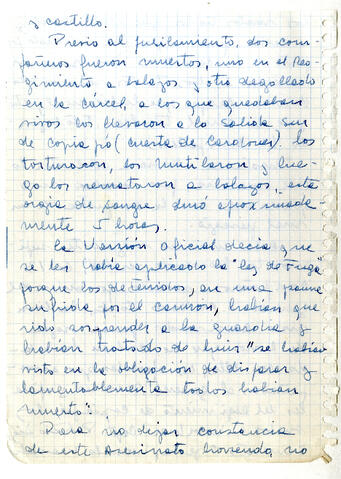 y castillo.
Previo al fusilamiento, dos com-
pañeros fueron muertos, uno en el Re-
gimiento a balazos y otro degollado
en la cárcel, a los que quedaban
vivos los llevaron a la salida sur
de copiapó (cuesta de Cardones), los
torturaron, los mutilaron y lue-
go los remataron a balazos, esta
orgia de sangre duró aproximada-
mente 5 horas.
La Versión Oficial decía que
se les había aplicado la "ley de Fuga"
porque los detenidos, en una panne
sufrida por el camion, habían que-
rido sorprender a la guardia y
habían tratado de huir "se habían
visto en la obligacion de disparar y
lamentablemente todos habían
muerto".
Para no dejar constancia
de este asesinato horrendo, no